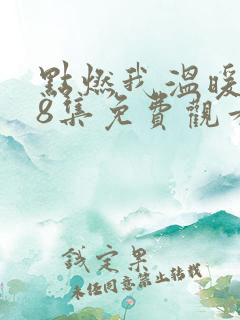 點燃我溫暖
8集免費觀看
錢定果
未经同意禁止转载